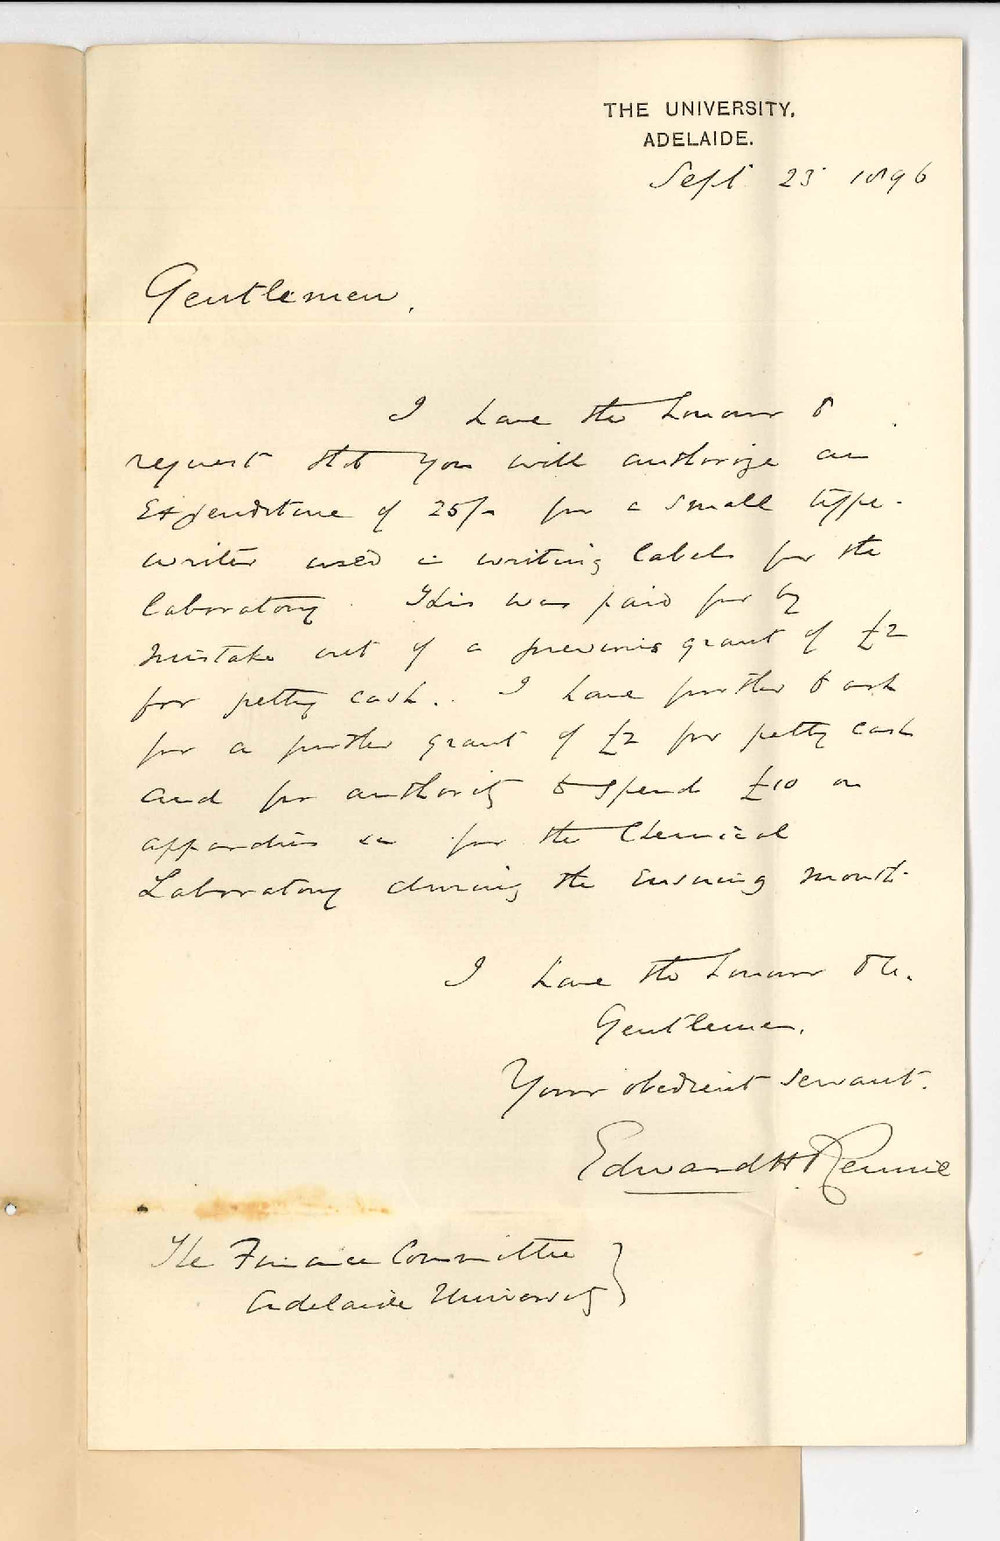 THE UNIVERSITY,
ADELAIDE.
Sept 23 1896
Gentlemen,
I have the honour to
request that you will authorize an
Expenditure of 25/- for a small type-
writer used in writing labels for the
laboratory. This was paid for by
mistake out of a previous grant of £2
for petty cash. I have further to ask
for a further grant of £2 for petty cash
and for authority to spend £10 on
apparatus &c for the Chemical
Laboratory during the ensuing month.
I have the honour to be,
Gentlemen,
Your obedient servant.
Edward H. Rennie
The Finance Committee
Adelaide University